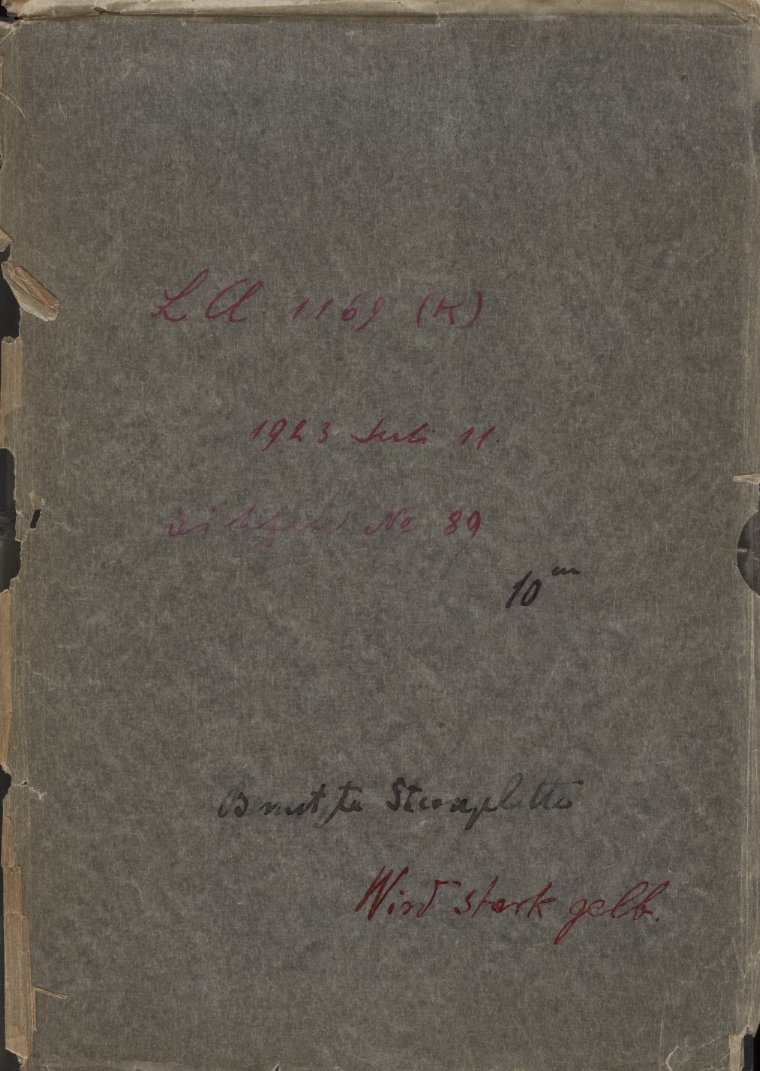 L A. 1169 (K)
1923 Juli 11.
No 89
10 m
Benutzte Sternplatte
Wird stark gelb.